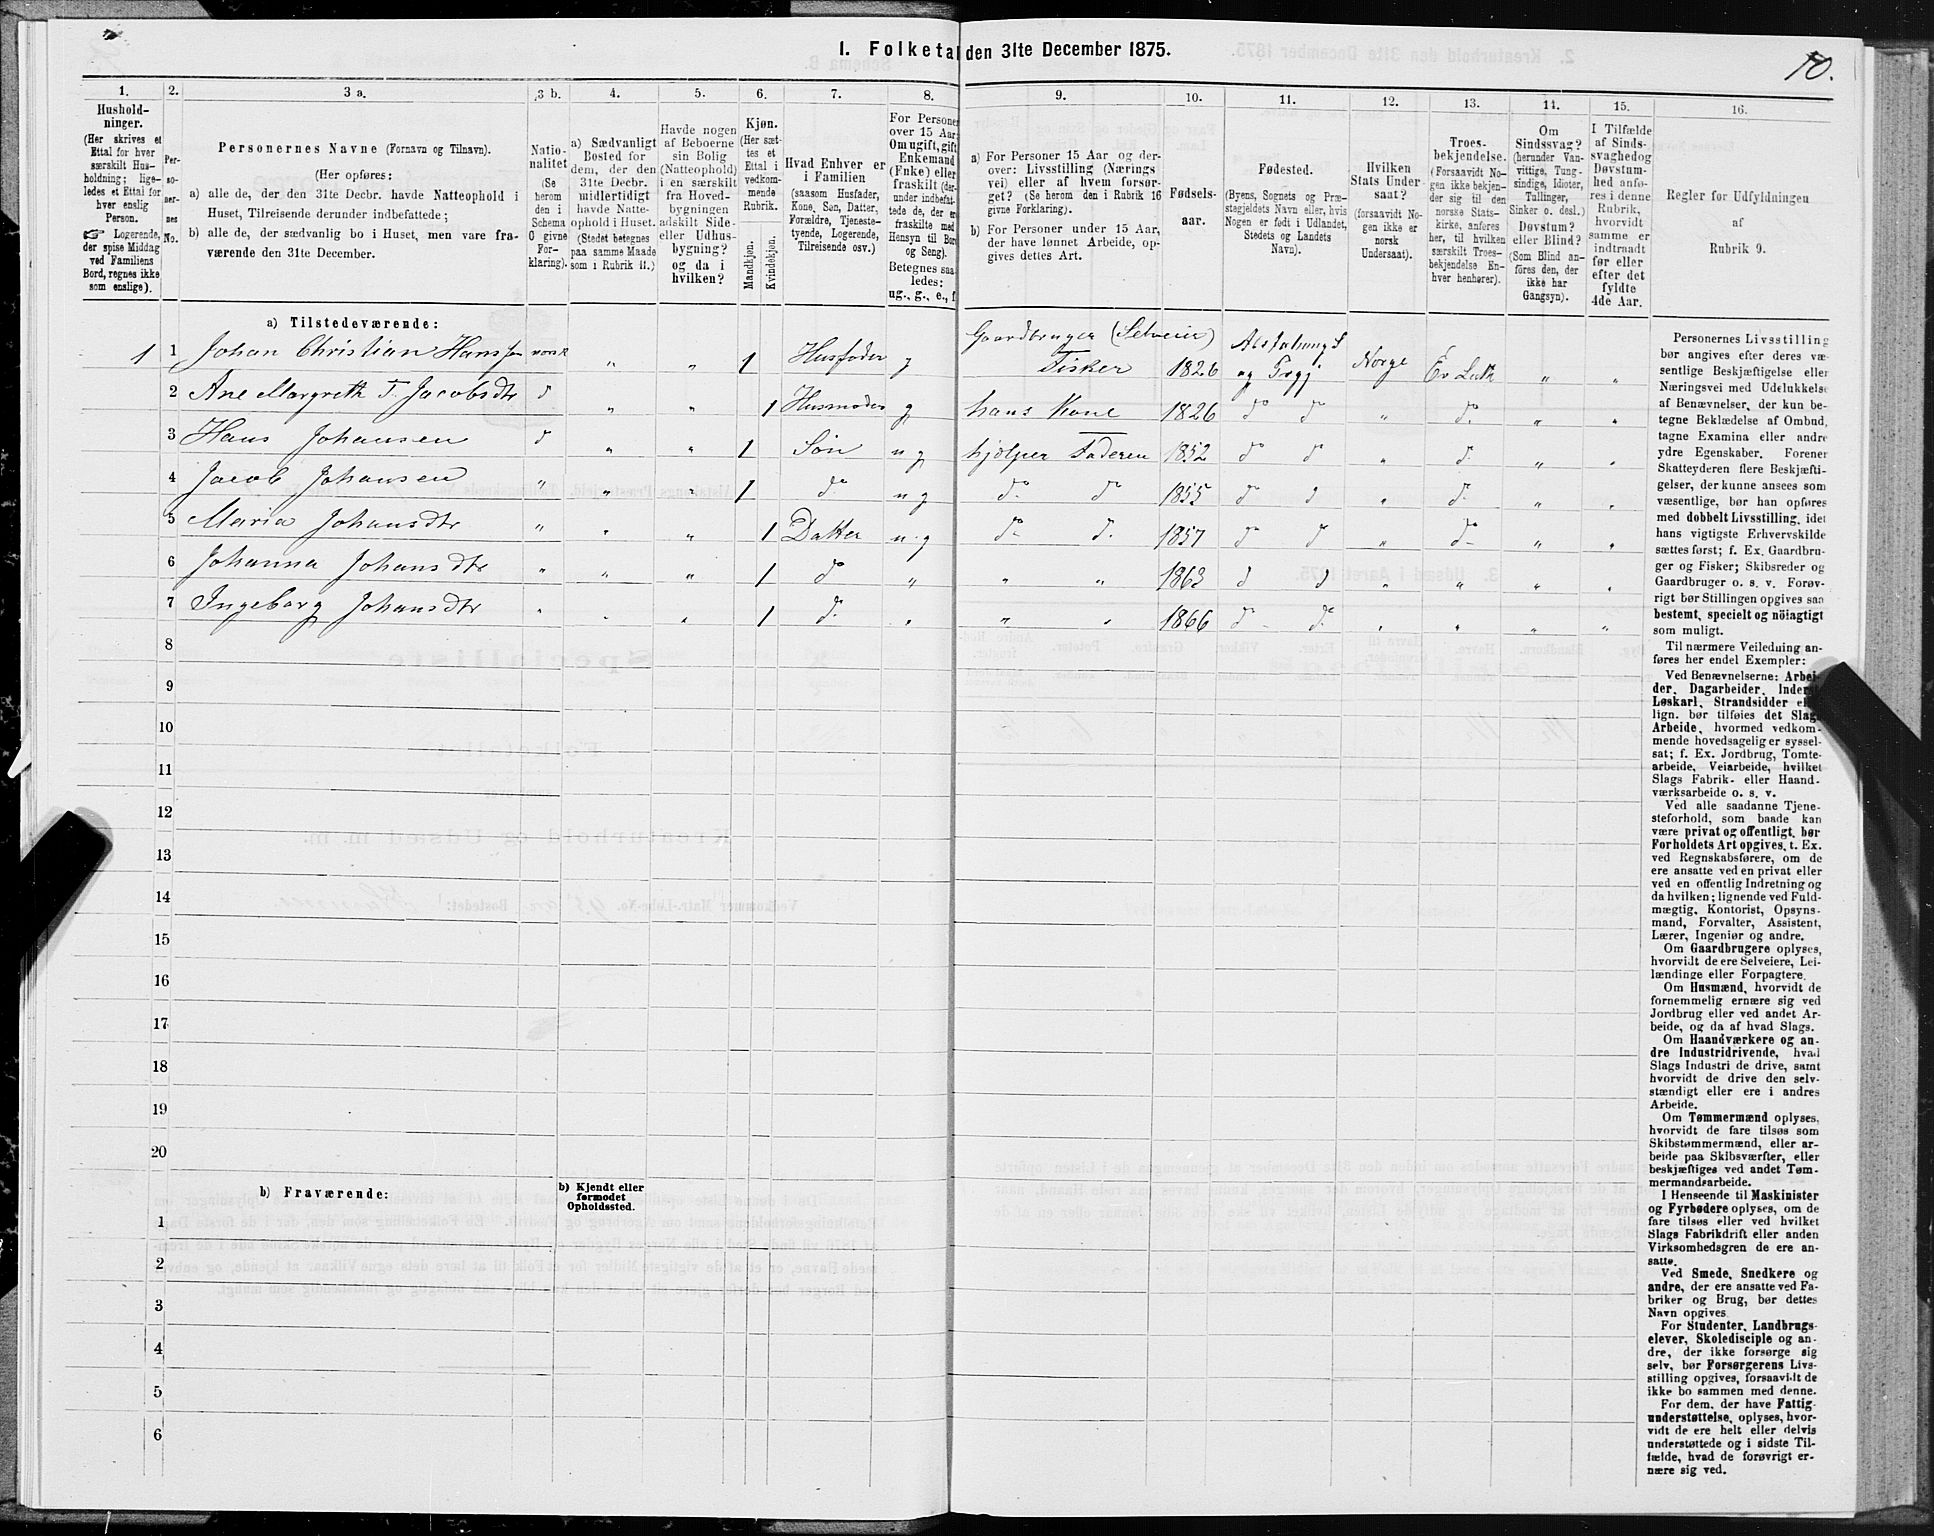 I. Folketal den 31te December 1875.
10.
1. 2. 3 a. 3 b. 4. 5. 6. 7. 8. 9. 10. 11. 12. 13. 14. 15. 16.
Hushold-
ninger.
(Her skrives et
Ettal for hver
særskilt Hus-
holdning; lige-
ledes et Ettal for
hver enslig
Person.
☞ Logerende,
der spise Middag
ved Familiens
Bord, regnes ikke
som enslige).
Per-
so-
ner-
nes
No.
Personernes Navne (Fornavn og Tilnavn).
(Her opføres:
a) alle de, der den 31te Decbr. havde Natteophold i
Huset, Tilreisende derunder indbefattede;
b) alle de, der sædvanlig bo i Huset, men vare fra-
værende den 31te December.
Natio-
nalitet
(Se
herom
den i
Schema
O givne
For-
klaring).
a) Sædvanligt
Bosted for
dem, der den
31te Decbr.
midlertidigt
havde Natte-
ophold i Huset.
(Stedet betegnes
paa samme Maade
som i Rubrik 11.)
Havde nogen
af Beboerne
sin Bolig
(Natteophold)
i en særskilt
fra Hoved-
bygningen
adskilt Side-
eller Udhus-
bygning?
og da i
hvilken?
Kjøn.
(Her sæt-
tes et
Ettal i
vedkom-
mende
Rubrik.
Mandkjøn.
Kvindekjøn.
Hvad Enhver er
i Familien
(saasom Husfader,
Kone, Søn, Datter,
Forældre, Tjeneste-
tyende, Logerende,
Tilreisende osv.)
For Personer
over 15 Aar:
Om ugift, gift,
Enkemand
(Enke) eller
fraskilt (der-
under indbefat-
tede de, der er
fraskilte med
Hensyn til Bord
og Seng).
Betegnes saa-
ledes:
ug., g., e., f.
a) For Personer 15 Aar og der-
over: Livsstilling (Nærings
vei) eller af hvem forsør-
get? (Se herom den i Rubrik 16
givne Forklaring).
b) For Personer under 15 Aar,
der have lønnet Arbeide, op-
gives dettes Art.
Fødsels-
aar.
Fødested.
(Byens, Sognets og Præ-
stegjeldets Navn eller, hvis
Nogen er født i Udlandet,
Stedets og Landets
Navn).
Hvilken
Stats Under-
saat?
(forsaavidt No-
gen ikke er
norsk
Undersaat).
Troes-
bekjendelse.
(Forsaavidt No-
gen ikke bekjen-
der sig til den
norske Stats-
kirke, anføres
her, til hvilken
særskilt Troes-
bekjendelse En-
hver henhører).
Om
Sindssvag?
(herunder Van-
vittige, Tung-
sindige, Idioter,
Tullinger,
Sinker o. desl.)
Døvstum?
eller Blind?
(Som Blind an-
føres den, der
ikke har
Gangsyn).
I Tilfælde
af Sinds-
svaghedog
Døvstum-
hed anfø-
res i denne
Rubrik,
hvorvidt
samme er
indtraadt
før eller
efter det
fyldte
4de Aar.
Regler for Udfyldningen
af
Rubrik 9.
a) Tilstedeværende:
1 1 Johan Christian Hanssen norsk „ „ 1 Husfader g Gaardbruger (Selveier) Fisker 1826 og Norge Ev Luth „ „
2 Ane Margreth T. Jacobsdtr d „ „ 1 Husmoder g hans Kone 1826 do do „ do. „ „
3 Hans Johansen d „ „ 1 Søn ug hjelper Faderen 1852 do do „ do „ „
4 Jacob Johansen „ „ „ 1 do ug do do 1855 do d „ do „ „
5 Maria Johansdtr „ „ „ 1 Datter u.g do d. 1857 do do „ do „ „
6 Johanna Johansdtr „ „ „ 1 do „ „ „ 1863 d d „ „ „ „
7 Ingeborg Johansdtr „ „ „ 1 do „ „ „ 1866 do do „ „ „ „
8
9
10
11
12
13
14
15
16
17
18
19
20
b) Fraværende:
b) Kjendt eller
formodet
Opholdssted.
1
2
3
4
5
6
Personernes Livsstilling
bør angives efter deres væ-
sentlige Beskjæftigelse eller
Næringsvei med Udelukkelse
af Benævnelser, der kun be-
tegne Beklædelse af Ombud,
tagne Examina eller andre
ydre Egenskaber. Forener
Skatteyderen flere Beskjæfti-
gelser, der kunne ansees som
væsentlige, bør han opføres
med dobbelt Livsstilling, idet
hans vigtigste Erhvervskilde
sættes først; f. Ex. Gaardbru-
ger og Fisker; Skibsreder og
Gaardbruger o. s. v. Forøv-
rigt bør Stillingen opgives saa
bestemt, specielt og nöiagtigt
som muligt.
Til nærmere Veiledning an-
føres her endel Exempler:
Ved Benævnelserne: Arbei-
der, Dagarbeider, Inderst,
Løskarl, Strandsidder el.
lign. bør tilføies det Slags
Arbeide, hvormed vedkom-
mende hovedsagelig er syssel-
sat; f. Ex. Jordbrug, Tomte-
arbeide, Veiarbeide, hvilket
Slags Fabrik- eller Haand-
værksarbeide o. s. v.
Ved alle saadanne Tjene-
steforhold, som baade kan
være privat og offentligt, bør
Forholdets Art opgives, t. Ex.
ved Regnskabsførere, om de
ere ansatte ved en privat eller
ved en offentlig Indretning og
da hvilken; lignende ved Fuld-
mægtig, Kontorist, Opsyns-
mand, Forvalter, Assistent,
Lærer, Ingeniør og andre.
Om Gaardbrugere oplyses,
hvorvidt de ere Selveiere, Lei-
lændinge eller Forpagtere.
Om Husmænd, hvorvidt de
fornemmelig ernære sig ved
Jordbrug eller ved andet Ar-
beide, og da af hvad Slags.
Om Haandværkere og an-
dre Industridrivende, hvad
Slags Industri de drive, samt
hvorvidt de drive den selv-
stændigt eller ere i andres
Arbeide.
Om Tømmermænd oplyses,
hvorvidt de fare tilsøs som
Skibstømmermænd, eller ar-
beide paa Skibsværfter, eller
beskjæftiges ved andet Tøm-
mermandsarbeide.
I Henseende til Maskinister
og Fyrbødere oplyses, om de
fare tilsøs eller ved hvilket
Slags Fabrikdrift eller anden
Virksomhedsgren de ere an-
satte.
Ved Smede, Snedkere og
andre, der ere ansatte ved Fa-
briker og Brug, bør dettes
Navn opgives
For Studenter, Landbrugs-
elever, Skoledisciple og an-
dre, der ikke forsørge sig
selv, bør Forsørgerens Livs-
stilling opgives, forsaavidt de
ikke bo sammen med denne.
For dem, der have Fattig-
understøttelse, oplyses, hvor-
vidt de ere helt eller delvis
understøttede og i sidste Til-
fælde, hvad de forøvrigt er-
nære sig ved.